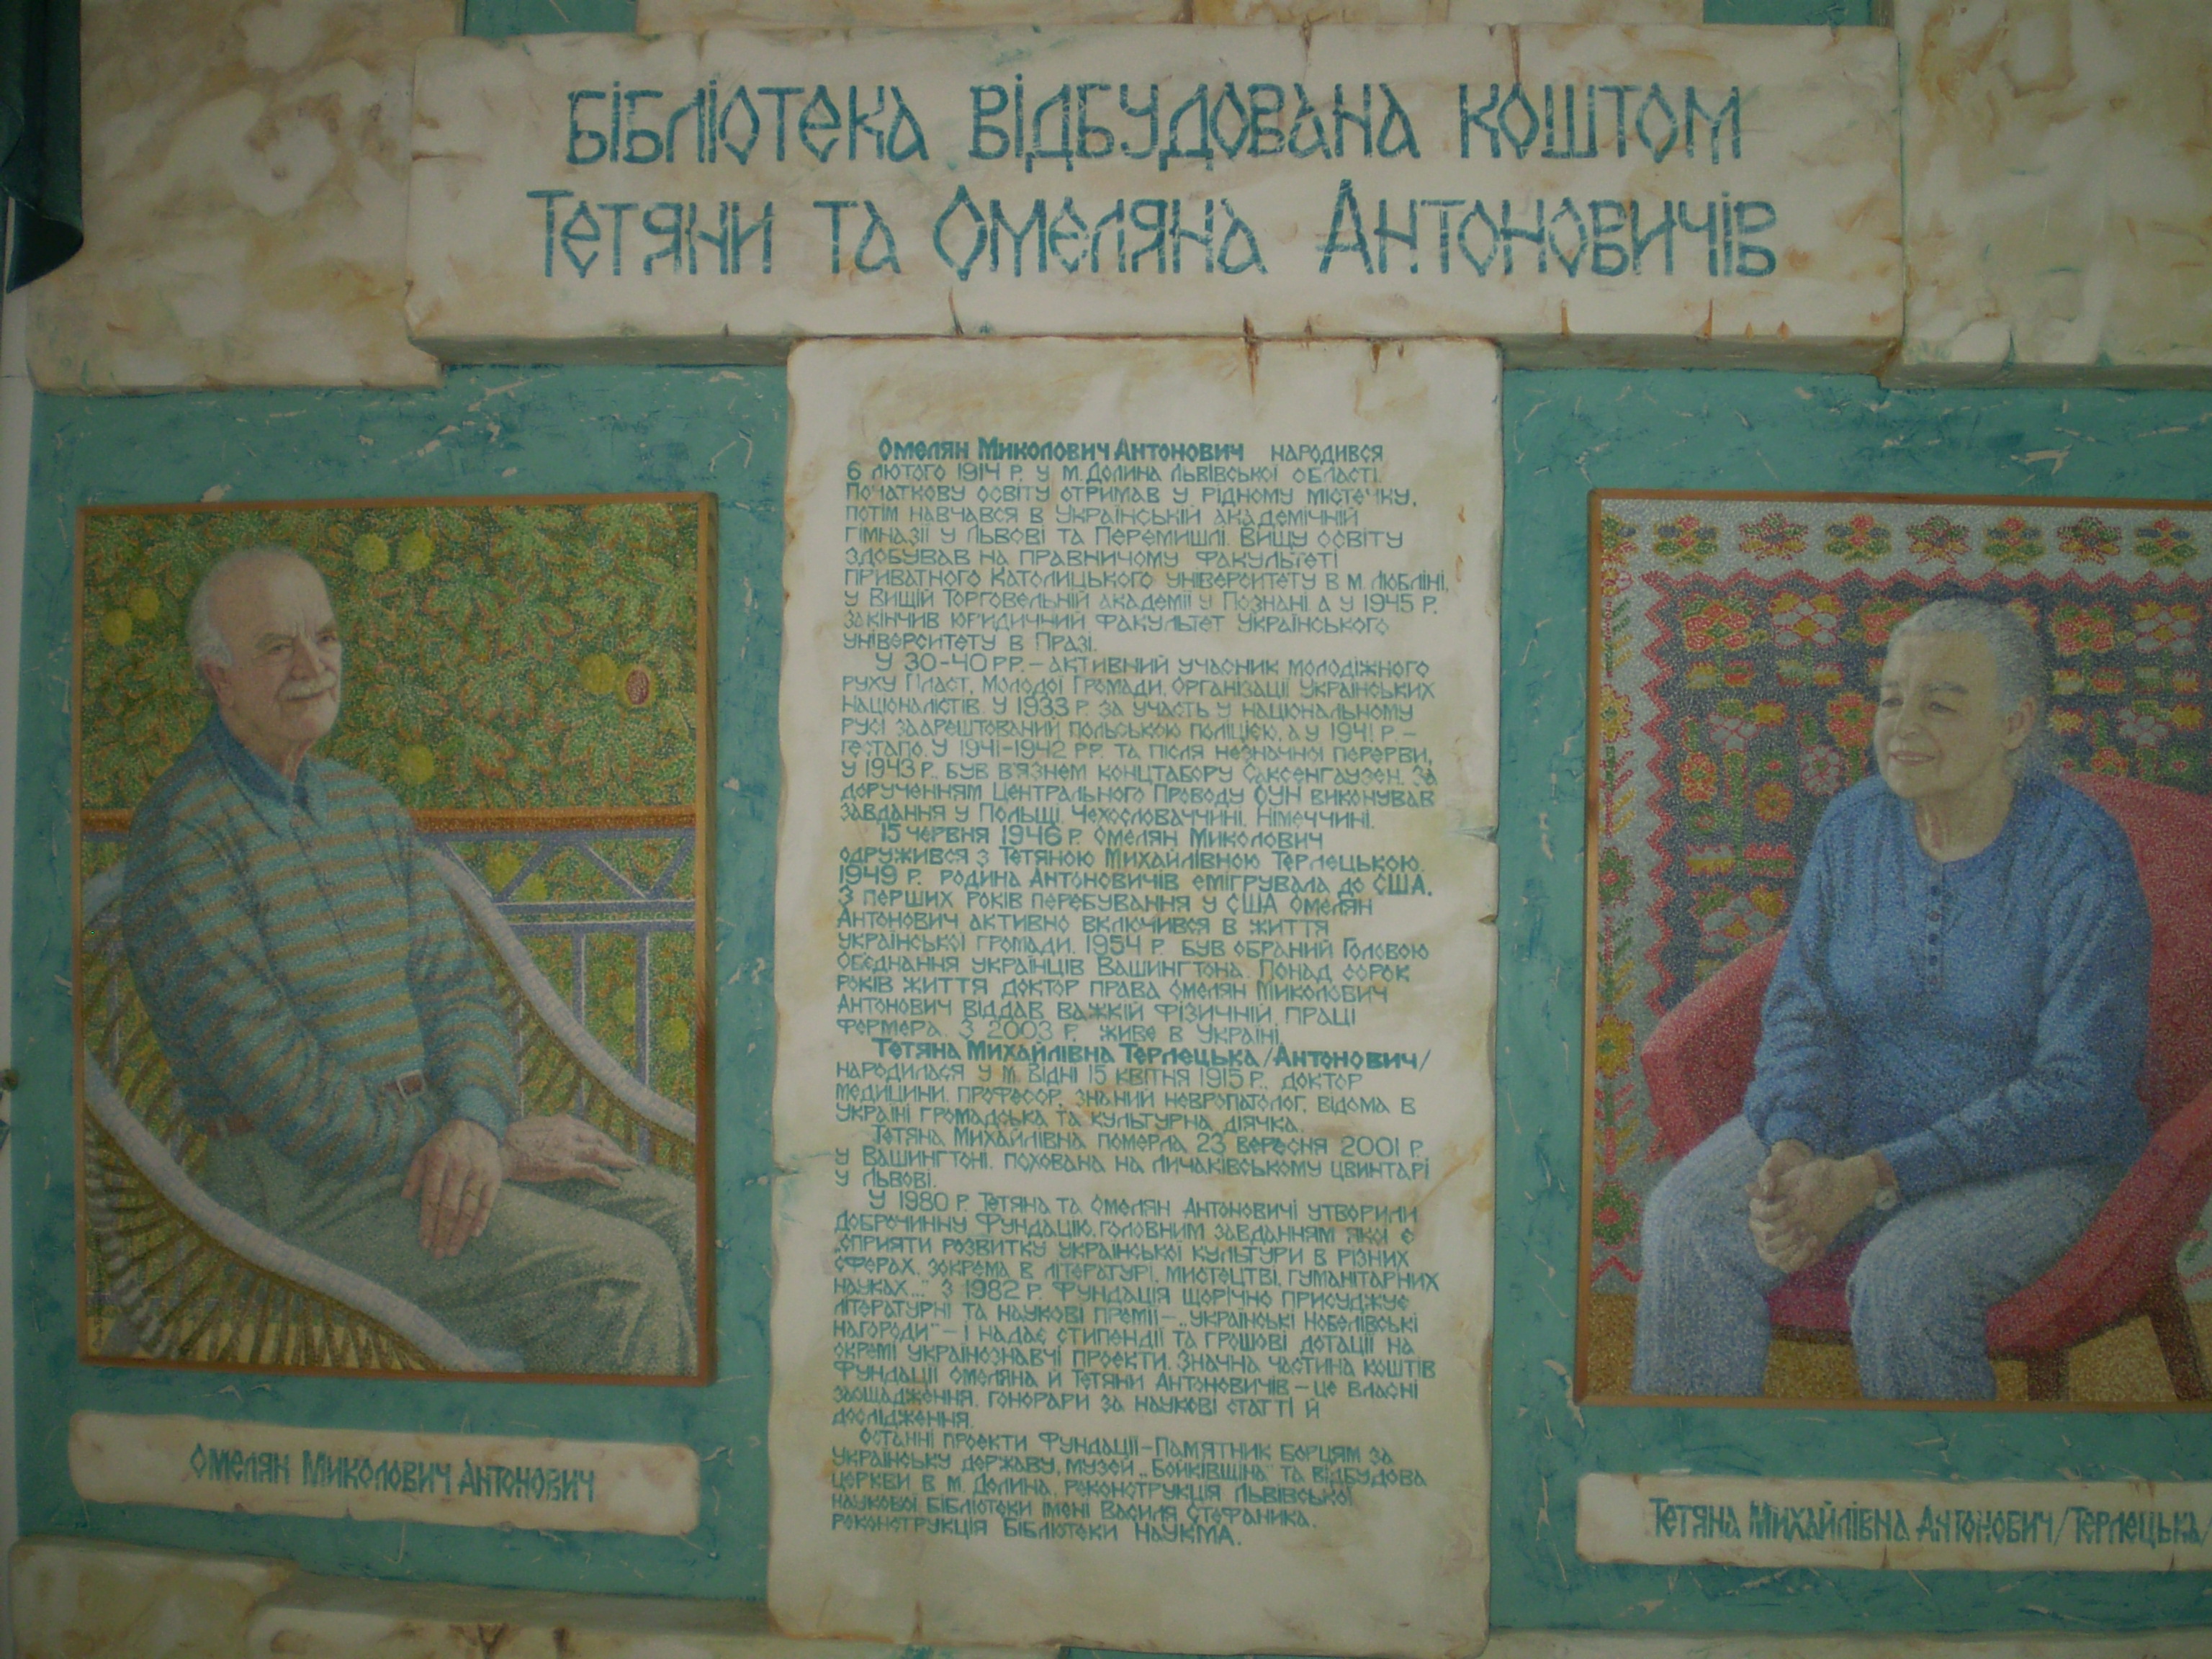 Бібліотека відбудована коштом
Тетяни та Омеляна Антоновичів
Омелян Миколович Антонович народився
6 лютого 1914 р. у м. Долина Львівської області.
Початкову освіту отримав у рідному містечку,
потім навчався в Українській академічній
гімназії у Львові та Перемишлі. Вищу освіту
здобував на правничому факультеті
приватного Католицького університету в м. Любліні,
у Вищій Торговельній академії у Познані, а у 1945 р.
закінчив юридичний факультет Українського
університету в Празі.
У 30-40 рр. – активний учасник молодіжного
руху Пласт, Молодої Громади, Організації Українських
Націоналістів. У 1933 р. за участь у національному
русі заарештований польською поліцією, а у 1941 р. –
гестапо. У 1941-1942 рр. та після незначної перерви,
у 1943 р., був в'язнем концтабору Саксенгаузен. За
дорученням Центрального Проводу ОУН виконував
завдання у Польщі, Чехословаччині, Німеччині.
15 червня 1946 р. Омелян Миколович
одружився з Тетяною Михайлівною Терлецькою.
1949 р. родина Антоновичів емігрувала до США.
З перших років перебування у США Омелян
Антонович активно включився в життя
української громади. 1954 р. був обраний Головою
Обєднання українців Вашингтона. Понад сорок
років життя доктор права Омелян Миколович
Антонович віддав важкій фізичній праці
фермера. З 2003 р. живе в Україні.
Тетяна Михайлівна Терлецька /Антонович/
народилася у м. Відні 15 квітня 1915 р., доктор
медицини, професор, знаний невропатолог, відома в
Україні громадська та культурна діячка.
Тетяна Михайлівна померла 23 вересня 2001 р.
у Вашингтоні, похована на Личаківському цвинтарі
у Львові.
У 1980 р. Тетяна та Омелян Антоновичі утворили
доброчинну Фундацію, головним завданням якої є
„сприяти розвитку української культури в різних
сферах, зокрема в літературі, мистецтві, гуманітарних
науках..." З 1982 р. Фундація щорічно присуджує
літературні та наукові премії – „українські Нобелівські
нагороди" – і надає стипендії та грошові дотації на
окремі українознавчі проекти. Значна частина коштів
Фундації Омеляна й Тетяни Антоновичів – це власні
заощадження, гонорари за наукові статті й
дослідження.
Останні проекти Фундації – Памятник борцям за
Українську державу, музей „Бойківщина" та відбудова
церкви в м. Долина, реконструкція Львівської
наукової бібліотеки імені Василя Стефаника,
реконструкція Бібліотеки НаУКМА.
Омелян Миколович Антонович
Тетяна Михайлівна Антонович /Терлецька/